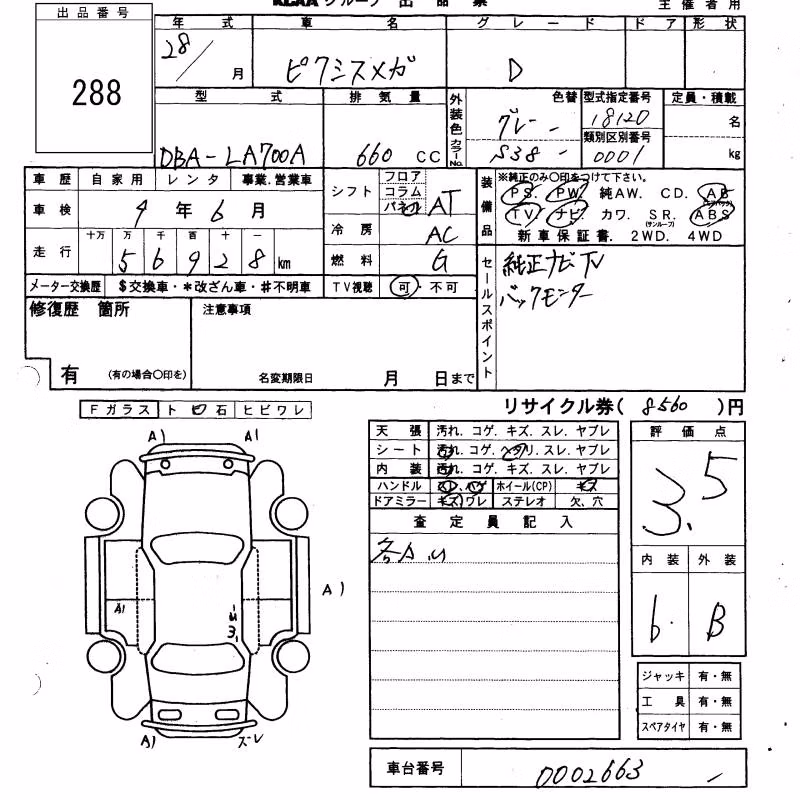 KCAA グループ 出 品 票
主 催 者 用
出 品 番 号
288
年 式 車 名 グ レ ー ド ド ア 形 状
28/ 月 ピクシスメガ D
型 式 排 気 量 外装色 カラーNo. 色替 型式指定番号 定員・積載
DBA-LA700A 660 CC グレー - 18120 名
類別区別番号
S38 - 0001 kg
車 歴 自 家 用 レ ン タ 事業.営業車
車 検 9 年 6 月
走 行 十万 万 千 百 十 一
5 6 9 2 8 km
メーター交換歴 $交換車・*改ざん車・#不明車
シフト フロア コラム パネル AT
冷 房 AC
燃 料 G
TV視聴 可・不可
装備品 ※純正のみ〇印をつけて下さい。
PS. PW. 純AW. CD. AB (エアバック)
TV ナビ カワ. SR. (サンルーフ) ABS
新 車 保 証 書. 2WD. 4WD
セールスポイント
純正ナビTV
バックモニター
修復歴 箇所 注意事項
有 (有の場合〇印を) 名変期限日 月 日まで
リサイクル券( 8560 )円
Fガラス ト ビ 石 ヒビワレ
A) A)
A)
A1
A) ズレ
天 張 汚れ. コゲ. キズ. スレ. ヤブレ
シート 汚れ. コゲ. ヘタリ. スレ. ヤブレ
内 装 汚れ. コゲ. キズ. スレ. ヤブレ
ハンドル スレ. ハゲ ホイール(CP) キズ
ドアミラー キズ. ワレ ステレオ 欠. 穴
査 定 員 記 入
各A.U
評 価 点
3.5
内 装 外 装
6. B
ジャッキ 有・無
工 具 有・無
スペアタイヤ 有・無
車台番号 0002663 -